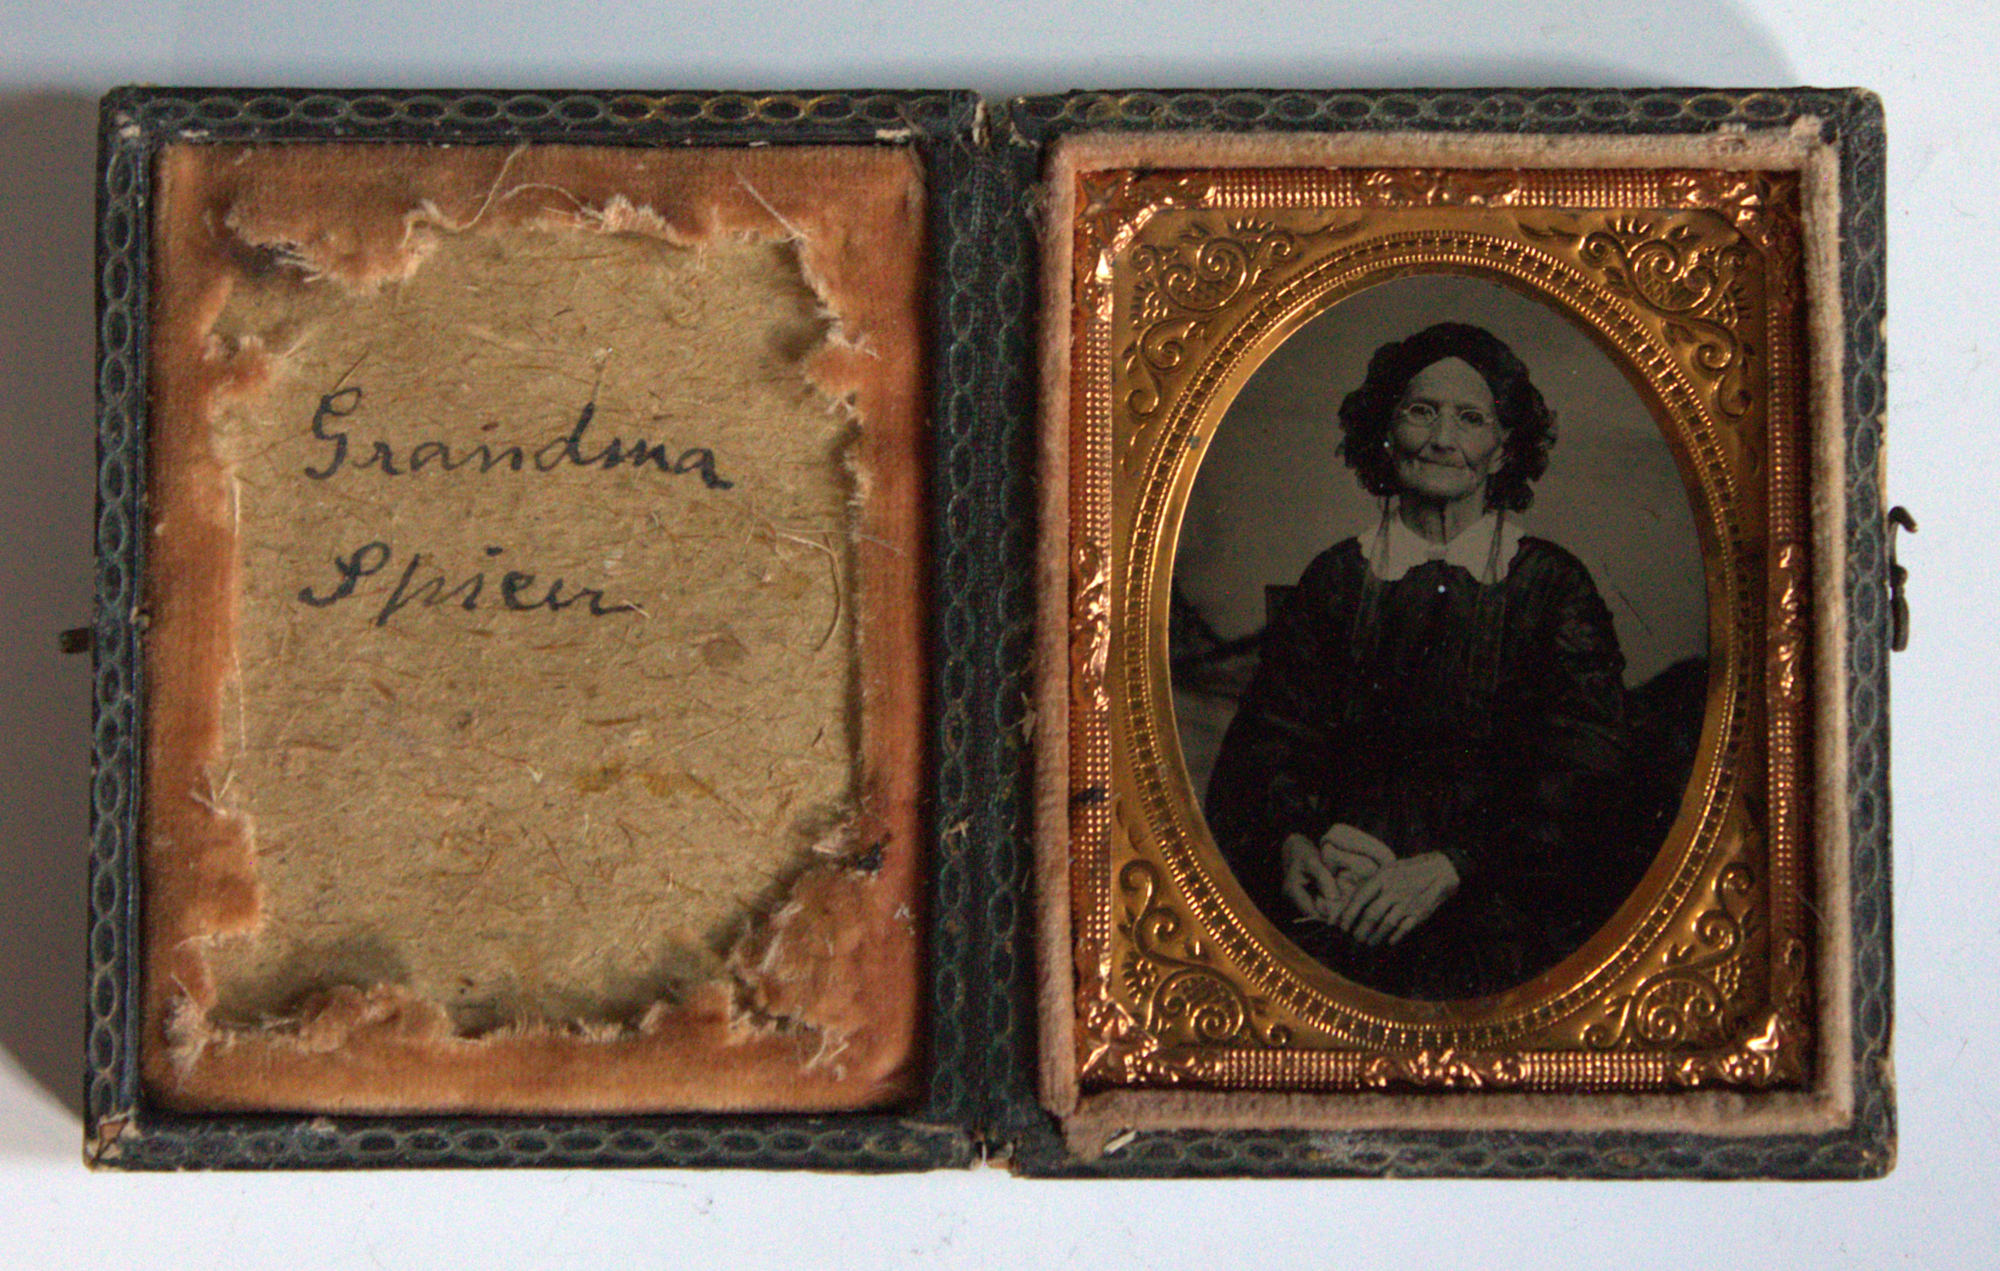 Grandma
Spicer